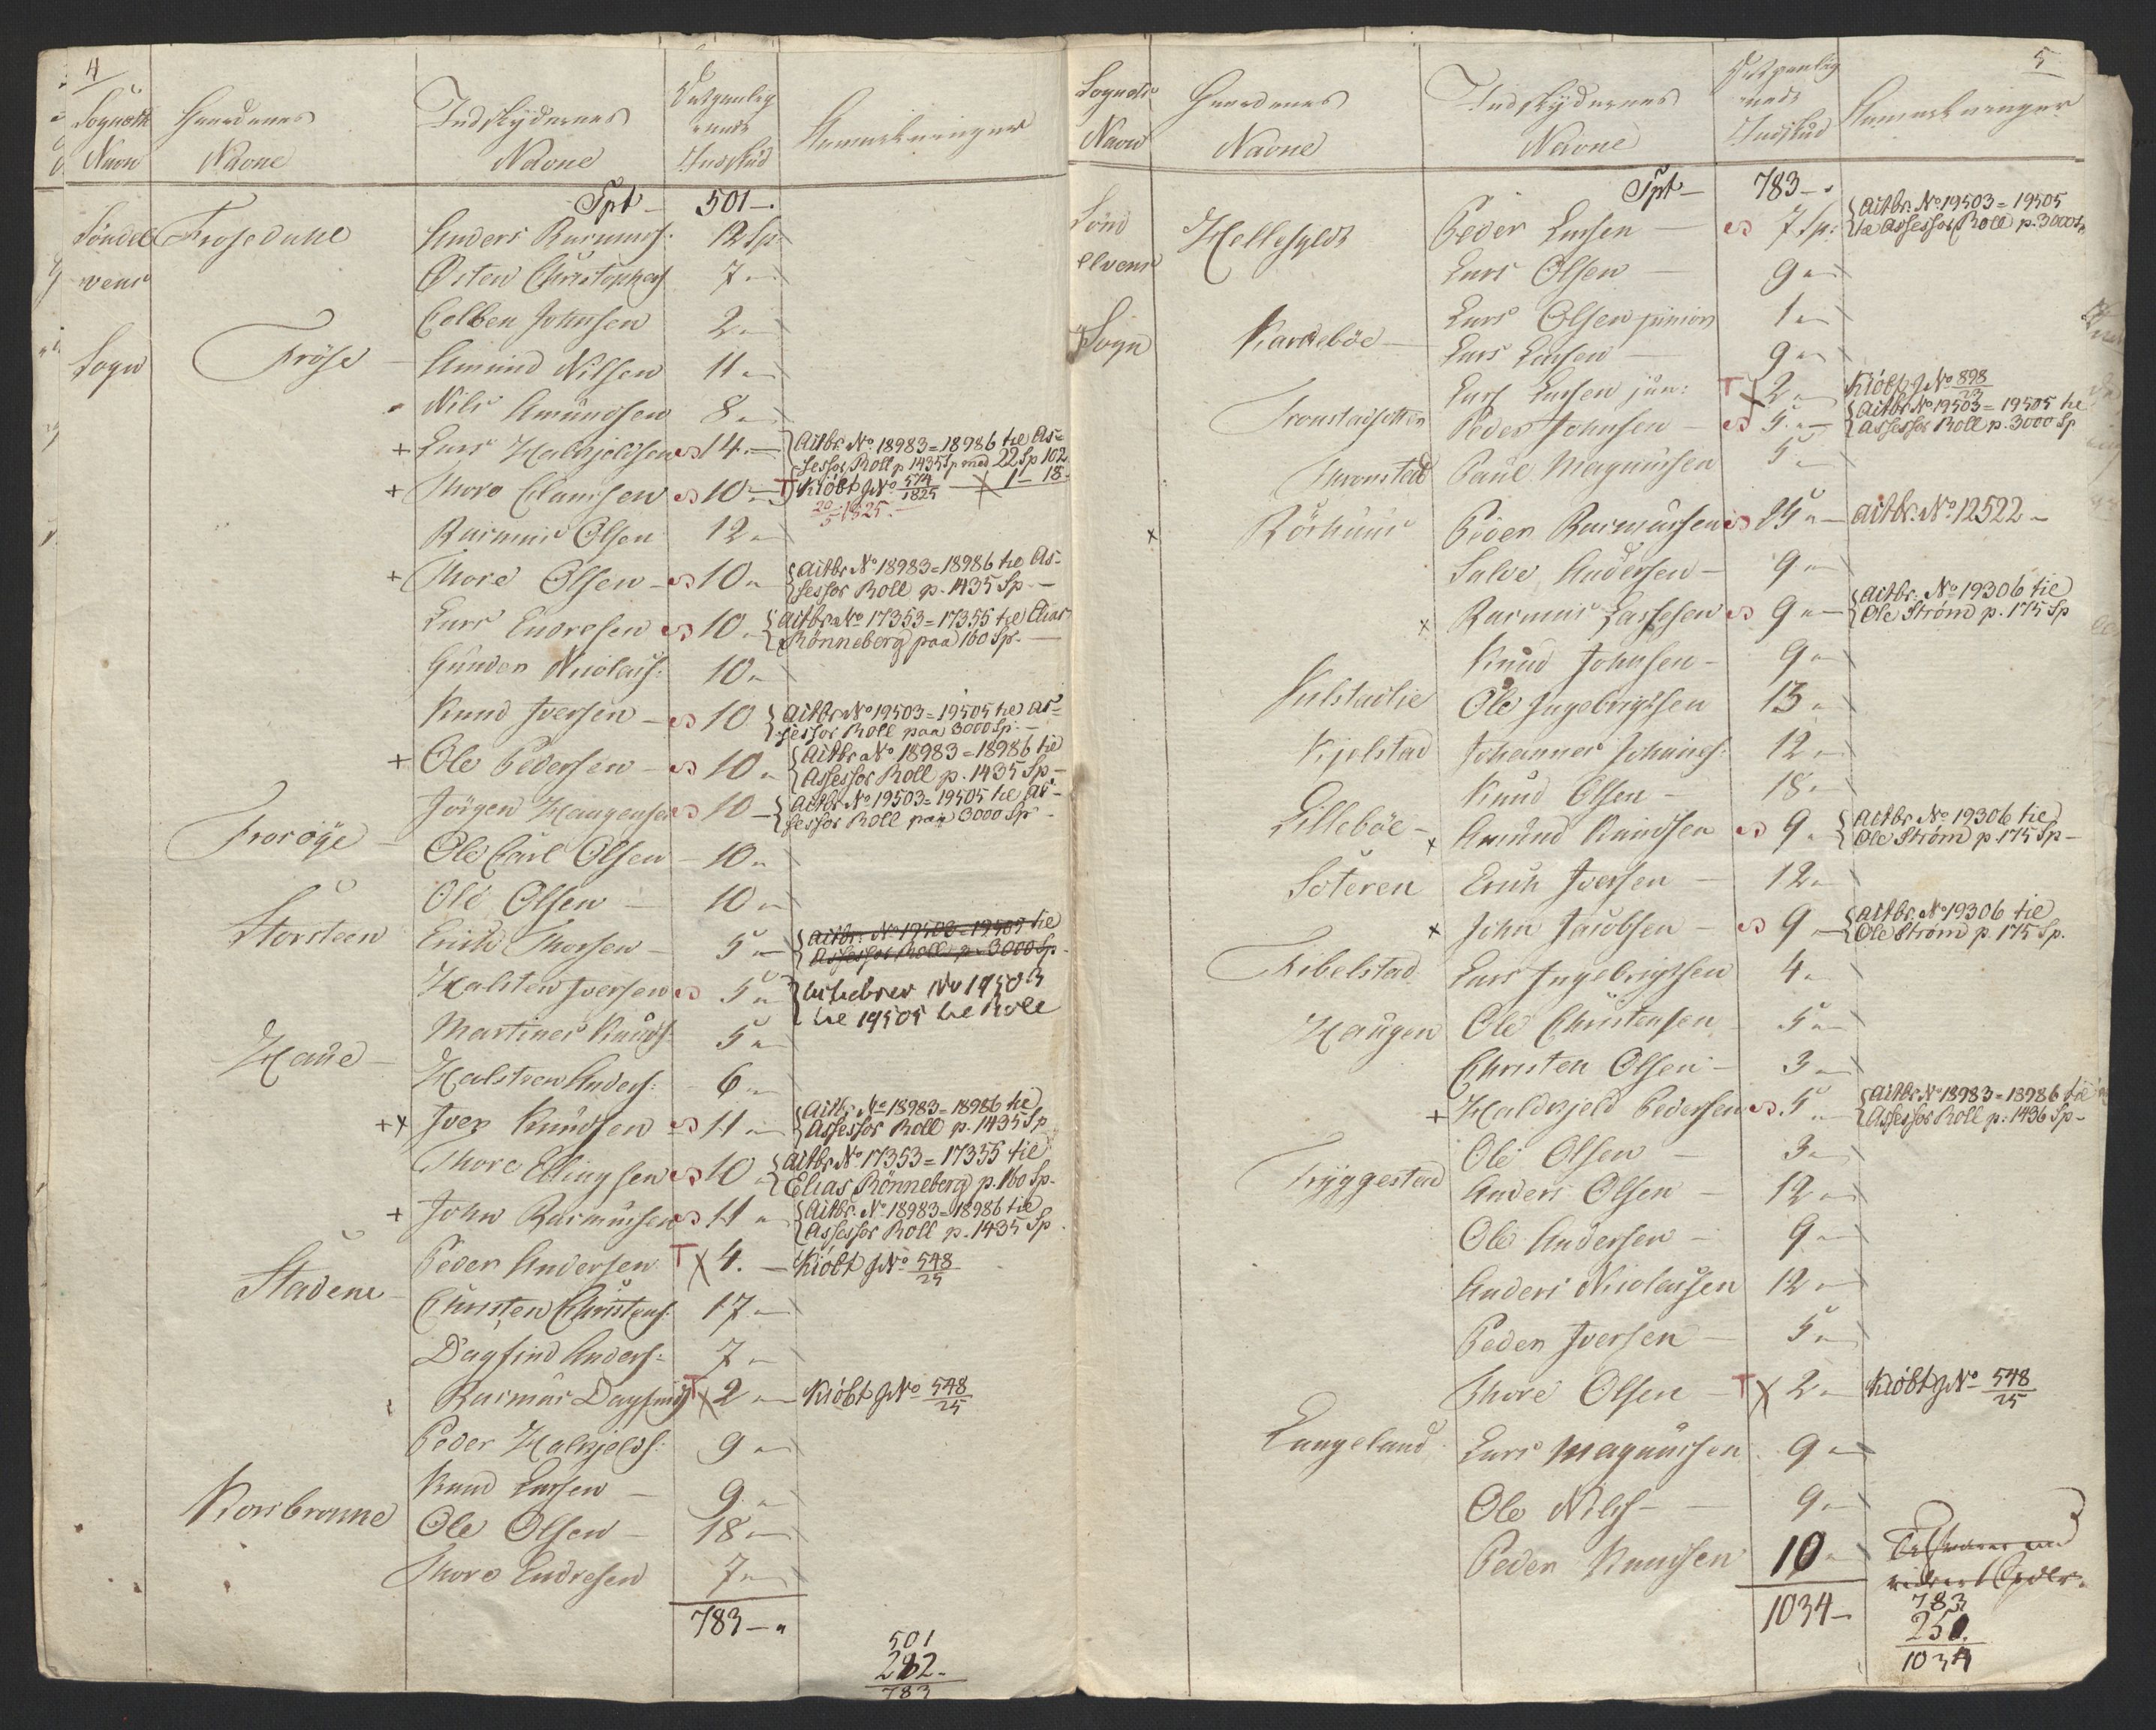 4
Sognets Gaardenes Indskydernes Anmærkninger
Navn Navne Navne Indskud
Spt — 501 —
Søndel Frosedahl Anders Rasmus: 12 Sp:
vens Østen Christophers 7 "
Colben Johnsen 2 "
Sogn Frøse — Amund Nilsen 11 "
Nils Amundsen 8 "
+ Lars Halkjeldsen 14 — Actbr. No 18983 = 18986 til As=
sessor Roll p 1435 Sp med 22 Sp 102
+ Thore Clausen 10 — T Kiöbt J No 574/1825 — X 1 — 18
20/5 1825.
Rasmus Olsen 12 "
+ Thore Olsen — 10 " Actbr No 18983 = 18986 til As-
sessor Roll p. 1435 Sp —
Lars Endresen 10 " Actbr No 17353 = 17355 til Elias
Rønneberg paa 160 Sp. —
Gunder Nicolais: 10 "
Knud Iversen — 10 Actbr No 19503 = 19505 til As=
sessor Roll paa 3000 Sp: —
+ Ole Pedersen — 10 " Actbr No 18983 = 18986 til
Assessor Roll p. 1435 Sp —
Jörgen Haugensen 10 — Actbr No 19503 = 19505 til As-
sessor Roll paa 3000 Sp
Frosöge — Ole Carl Olsen — 10 "
Ole Olsen — 10 "
Storsteen Erich Thorsen — 5 " Actbr: No 19503 = 19505 til
Assessor Roll p. 3000 Sp.
Halsten Iversen 5 " Actiebrev No 19503
til 19505 til Roll
Haue — Martines Knuds: 5 "
Halsteen Anders: — 6 "
+x Iver Knudsen 11 " Actbr. No 18983 = 18986 til
Assessor Roll p. 1435 Sp
Thore Ellingsen 10 " Actbr No 17353 = 17355 til
Elias Rønneberg p. 160 Sp.
+ John Rasmussen 11 " Actbr. No 18983 = 18986 til
Assessor Roll p. 1435 Sp
Stadene — Peder Andersen T X 4. — Kiöbt J No 548/25
Christen Christens: 17 "
Dagfind Anders: 7 "
Rasmus Dagfinds T X 2 " Kiöbt J No 548/25
Peder Halkjelds: 9 "
Knud Larsen — 9 "
Korsbrønne Ole Olsen — 18 "
Thore Endresen 7 "
783 — "
501
282.
783
5
Sognets Gaardenes Indskydernes Anmærkninger
Navn Navne Navne Indskud
Spt — 783 — "
Sønd Hellesyldt Peder Larsen — 7 Sp: Actbr. No 19503 = 19505
til Assessor Roll p. 3000 Sp
elvens Lars Olsen — 9 "
Lars Olsen junior 1 "
Sogn Karlebøe — Lars Larsen — 9 "
Lars Larsen jun: T X 2 " Kiöbt J No 898/23
Tronstadsetter Peder Johnsen — 5 " — Actbr No 19503 = 19505 til
Assessor Roll p. 3000 Sp
Thronstad Paul Magnusen 5 "
x Rörhuus Peder Rasmussen 25 " — Actbr. No 12522 —
Salve Andersen — 9 "
x Rasmus Lassesen 9 " — Actbr: No 19306 til
Ole Strøm p. 175 Sp
Knud Johnsen — 9 "
Kielstadlie Ole Ingebrigtsen 13 "
Kjelstad Johannes Johans: 12 "
Knud Olsen — 18 "
Lillebøe — x Amund Knudsen 9 " Actbr No 19306 til
Ole Strøm p. 175 Sp —
Soteren Erich Iversen — 12 "
x John Jacobsen — 9 " Actbr. No 19306 til
Ole Strøm p. 175 Sp.
Fibelstad Lars Ingebrigtsen 4 "
Haugen Ole Christensen 5 "
Christen Olsen — 3 "
+ Haldkjeld Pedersen 5 " Actbr No 18983 = 18986 til
Assessor Roll p: 1436 Sp —
Ole Olsen — 3 "
Tryggestad Anders Olsen — 12 "
Ole Andersen — 9 "
Anders Nicolaisen 12 "
Peder Iversen — 5 "
Thore Olsen — T X 2 " Kiöbt J No 548/25
Langeland Lars Magnussen 9 "
Ole Nils — 9 "
Peder Knudsen 10 "
1034 —
783
250.
1034